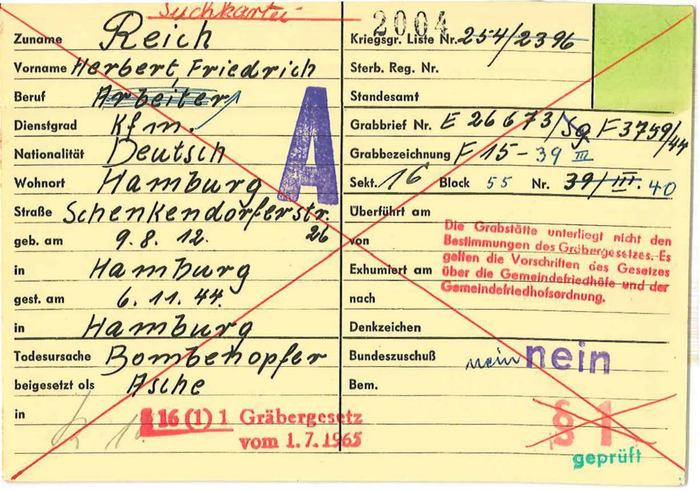 Suchkartei
2004
Zuname Reich
Vorname Herbert Friedrich
Beruf Arbeiter
Dienstgrad Kfm.
Nationalität Deutsch
Wohnort Hamburg
Straße Schenkendorferstr. 26
geb. am 9.8.12.
in Hamburg
gest. am 6.11.44.
in Hamburg
Todesursache Bombenopfer
beigesetzt als Asche
in
§ 16 (1) 1 Gräbergesetz
vom 1.7.1965
A
Kriegsgr. Liste Nr. 254/2396
Sterb. Reg. Nr.
Standesamt
Grabbrief Nr. E 26673/Sg F3759/44
Grabbezeichnung F 15-39 III
Sekt. 16 Block 55 Nr. 39/III. 40
Überführt am
von
Exhumiert am
nach
Denkzeichen
Bundeszuschuß nein nein
Bem.
Die Grabstätte unterliegt nicht den
Bestimmungen des Gräbergesetzes. Es
gelten die Vorschriften des Gesetzes
über die Gemeindefriedhöfe und der
Gemeindefriedhofsordnung.
§ 1
geprüft